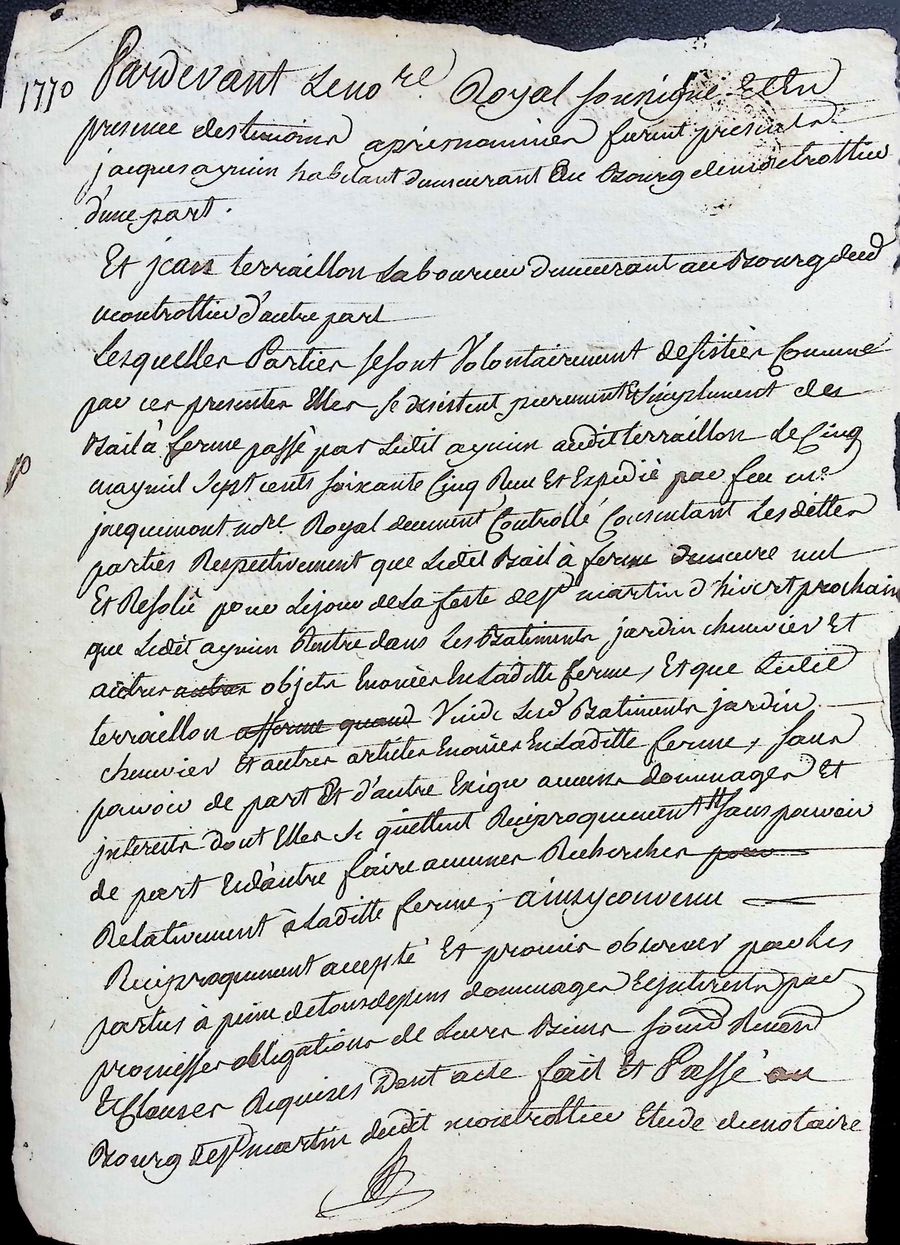 1770 Pardevant Le no.re Royal soussigné Et En
presence des temoins aprés nommés furent presents
jacques aymin habitant demeurant Au Bourg de montrottier
d'une part.
Et jean terraillon Laboureur demeurant au Bourg dud
montrottier d'autre part
Lesquelles Parties se sont Volontairement desistées Comme
par ces presentes Elles se desistent purement Et simplement des
Bail à ferme passé par Ledit aymin audit terraillon Le Cinq
may mil Sept cents soixante Cinq Recu Et Expedié par feu me
jacquemont no.re Royal duement Controllé Consentant Lesdittes
parties Respectivement que Ledit Bail à ferme demeure nul
Et Resolû pour Le jour de La feste de St martin d'hivert prochain
que Ledit aymin Rentre dans Les Batiments jardin chenvier Et
autres autres objets Enoncés En Laditte ferme, Et que Ledit
terraillon afferme quand Vuide Lesd Batiments jardin
chenvier Et autres articles Enoncés En Laditte ferme, sans
pouvoir de part Et d'autre Exiger aucuns dommages Et
interests dont Elles Se quittent Reciproquement sans pouvoir
de part Et d'autre faire aucunes Recherches pour
Relativement à Laditte ferme; ainsy convenu
Reciproquement accepté Et promis observer par Les
parties à peine de tous depens dommages Et interests par
promesses obligations de Leurs Biens soumd Renond
Et Clauses Requises Dont acte fait Et Passé au
Bourg de St martin dudit montrottier Etude du notaire